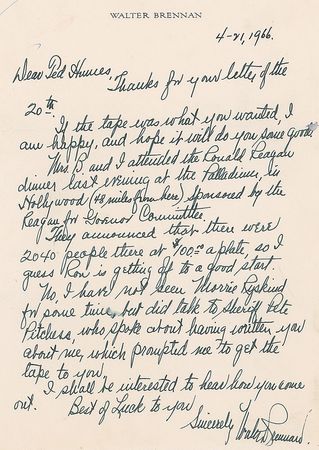 WALTER BRENNAN
4-21, 1966.
Dear Ted Humes,
Thanks for your letter of the
20th.
If the tape was what you wanted, I
am happy, and hope it will do you some good.
Mrs. B. and I attended the Ronald Reagan
dinner last evening at the Palladium, in
Hollywood (48 miles from here) sponsored by the
Reagan for Govenor Committee.
They announced that there were
2040 people there at $100.00 a plate, so I
guess Ron is getting off to a good start.
No, I have not seen Morrie Ryskind
for some time, but did talk to Sheriff Pete
Pitchess, who spoke about having written you
about me, which prompted me to get the
tape to you.
I shall be interested to hear how you come
out. Best of Luck to you
Sincerely Walter Brennan